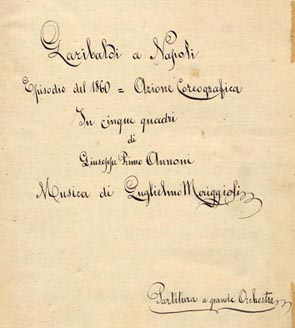 Garibaldi a Napoli
Episodio del 1860 = Azione Coreografica
In cinque quadri
di
Giuseppe Primo Annoni
Musica di Guglielmo Moriggioli
Partitura a grande Orchestra